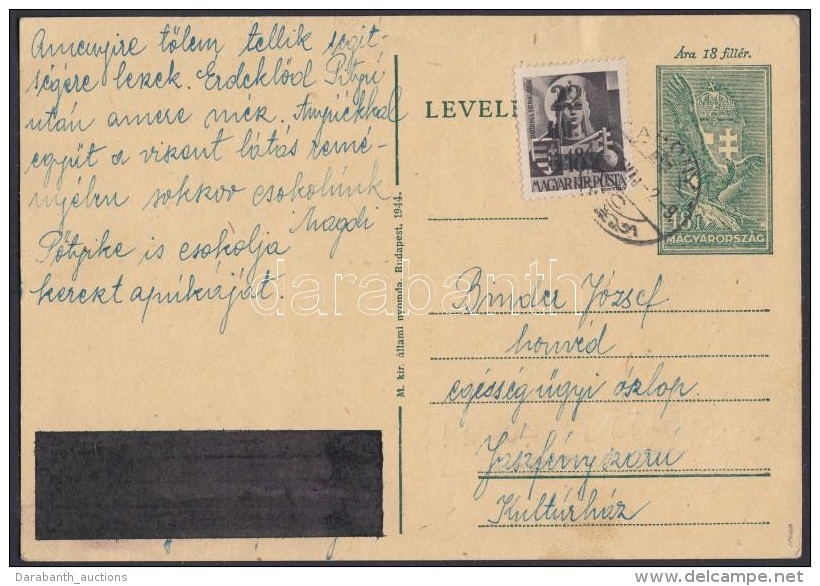 Amenyire tőlem tellik segit-
ségére leszek. Erdeklőd Pötyi
után amere mék. Anyiékkal
együt a viszont látás remé-
nyében sokkov csokolunk
Magdi
Pötyike is csokolja
kereszt apukáját.
M. kir. állami nyomda. Budapest, 1944.
Ára 18 fillér.
LEVELE
22
MAGYAR KIR. POSTA
MAGYARORSZÁG
Binder József
honvéd
egésségügyi oszlop.
Jászfényszaru
Kultúrház
darabanth
Darabanth_auctions
delcampe.net